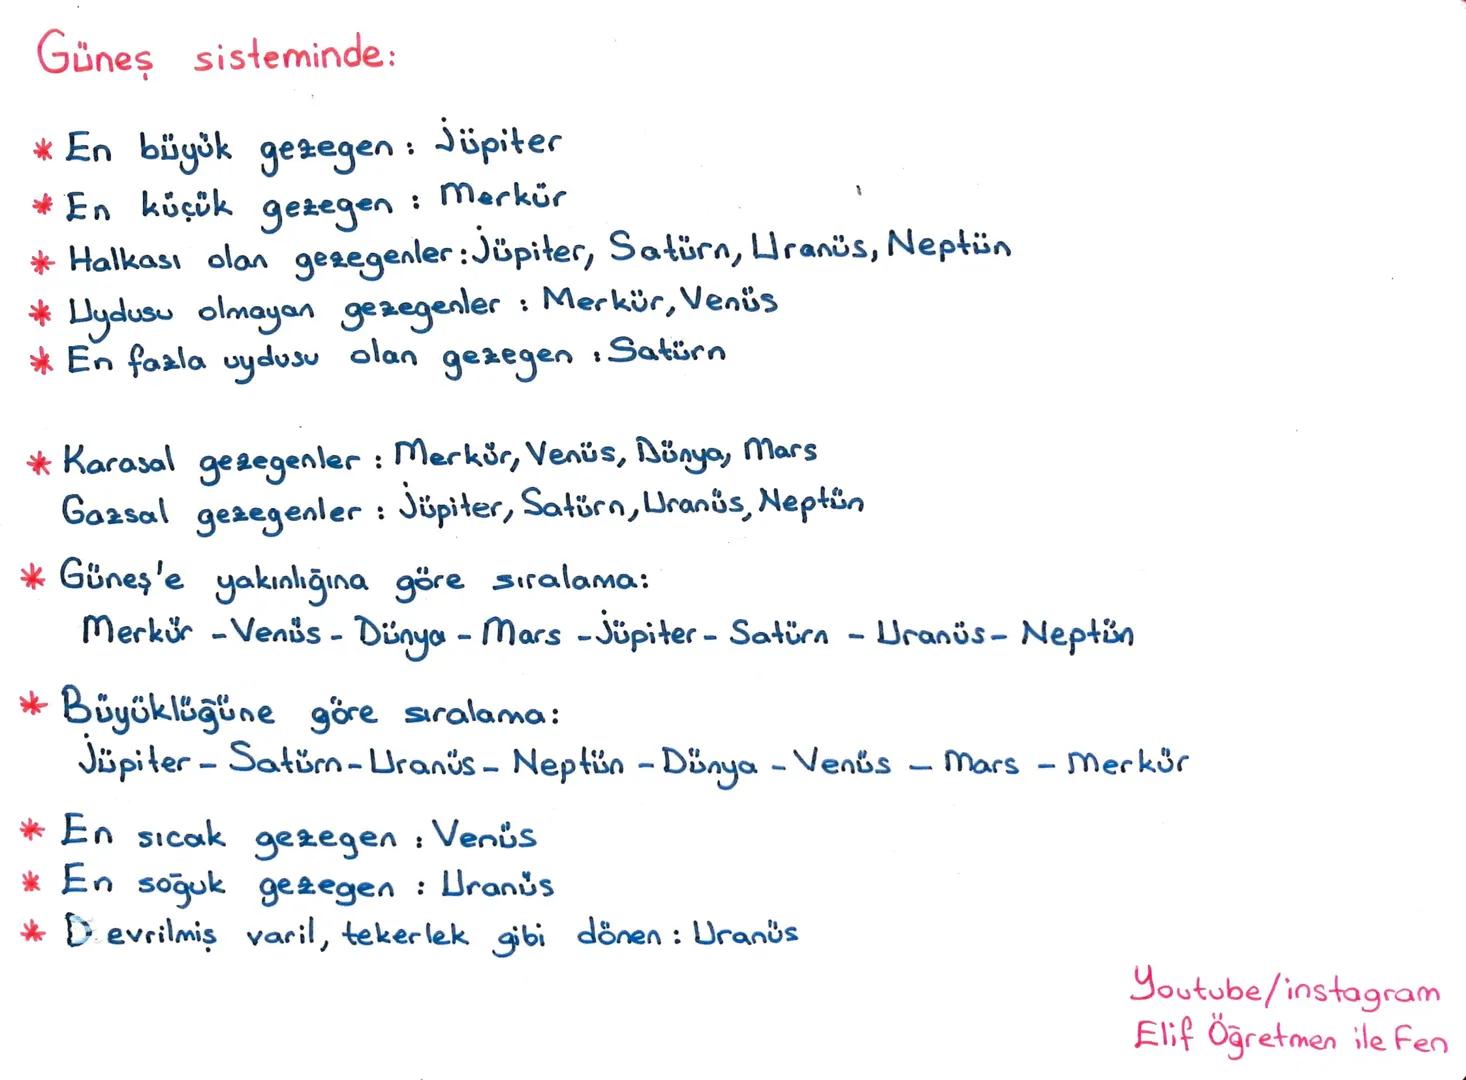 Güneş sisteminde:
* En büyük gezegen : Jüpiter
* En küçük gezegen : Merkür
* Halkası olan gezegenler : Jüpiter, Satürn, Uranüs, Neptün
* Uydusu olmayan gezegenler : Merkür, Venüs
* En fazla uydusu olan gezegen : Satürn
* Karasal gezegenler : Merkür, Venüs, Dünya, Mars
Gazsal gezegenler : Jüpiter, Satürn, Uranüs, Neptün
* Güneş'e yakınlığına göre sıralama:
Merkür - Venüs - Dünya - Mars - Jüpiter - Satürn - Uranüs - Neptün
* Büyüklüğüne göre sıralama:
Jüpiter - Satürn - Uranüs - Neptün - Dünya - Venüs - Mars - Merkür
* En sıcak gezegen : Venüs
* En soğuk gezegen : Uranüs
* Devrilmiş varil, tekerlek gibi dönen : Uranüs
Youtube/instagram
Elif Öğretmen ile Fen